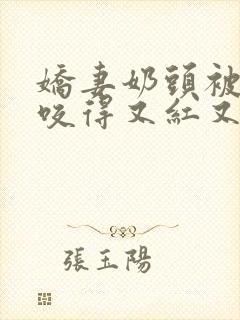 嬌妻奶頭被
咬得又紅又
張玉陽